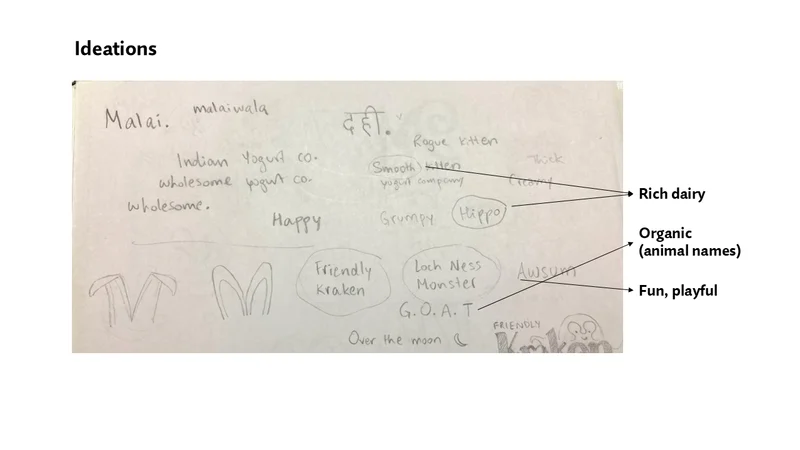 Ideations
Malai.
malaiwala
दही.
Rogue kitten
Indian Yogurt co.
Smooth kitten
Thick
wholesome yogurt co.
yogurt company
Creamy
wholesome.
Happy
Grumpy
Hippo
Friendly
Kraken
Loch Ness
Monster
Awsum
G.O.A.T
Over the moon
FRIENDLY
Kraken
Rich dairy
Organic
(animal names)
Fun, playful